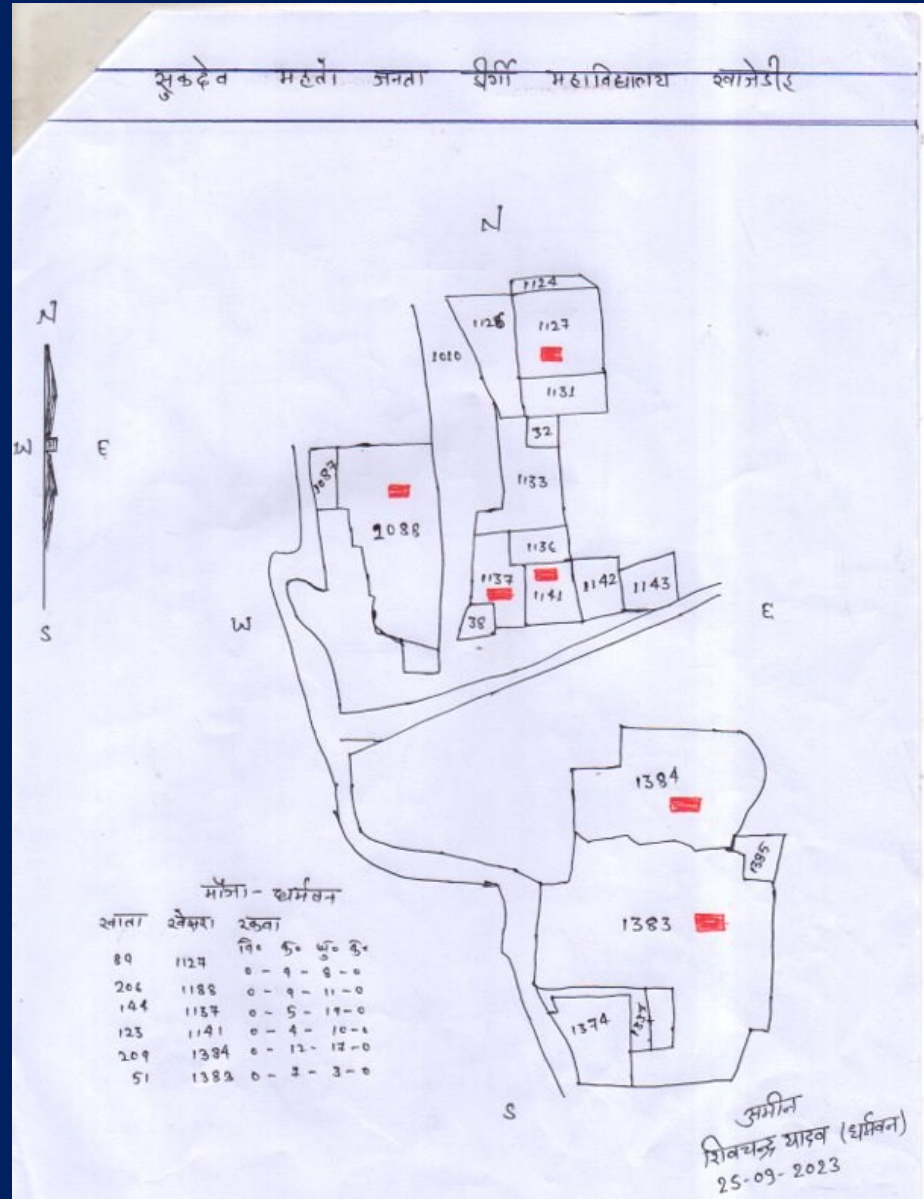 सुकदेव महतो जनता डीग्री महाविद्यालय खाजेडीह
N
1124
1126
1127
1010
1131
N
32
W E
1087
1133
2088
1136
1137
1141
1142
1143
38
S
W
E
1384
1385
1383
मौजा - धर्मवन
खाता खेसरा रकवा
बि० क० धु० कु०
89 1127 0 - 9 - 8 - 0
206 1188 0 - 9 - 11 - 0
144 1137 0 - 5 - 19 - 0
123 1141 0 - 4 - 10 - 0
209 1384 0 - 12 - 12 - 0
51 1383 0 - 2 - 3 - 0
1374
S
अमीन
शिवचन्द्र यादव (धर्मवन)
25-09-2023